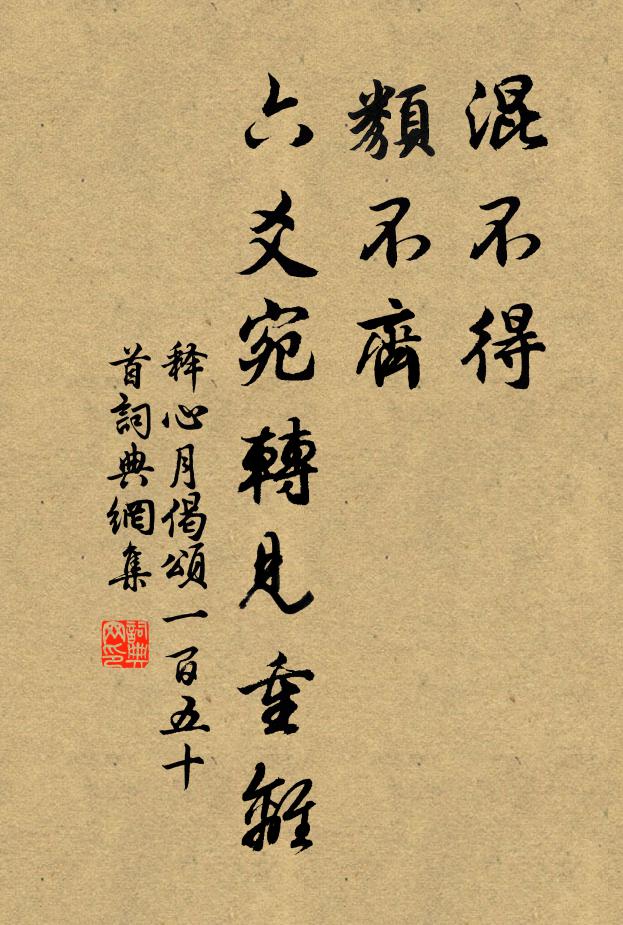 混不得
類不齊
六爻宛轉見重離
释心月偈頌一百五十
首詞典網集
詞典
网印